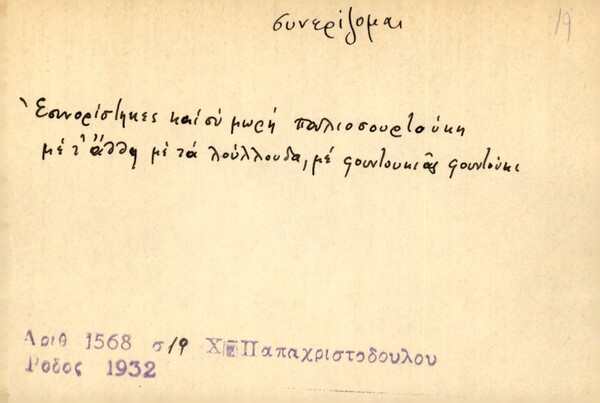 συνερίζομαι
19
Ἐσυνορίστηκες καὶ σύ μωρή παλιοσουρτούκη
μέ τ' ἄθθη μέ τά λούλλουδα, μέ φουντουκιᾶς φουντούκι
Αριθ 1568 σ 19 Χ Παπαχριστοδουλου
Ροδος 1932